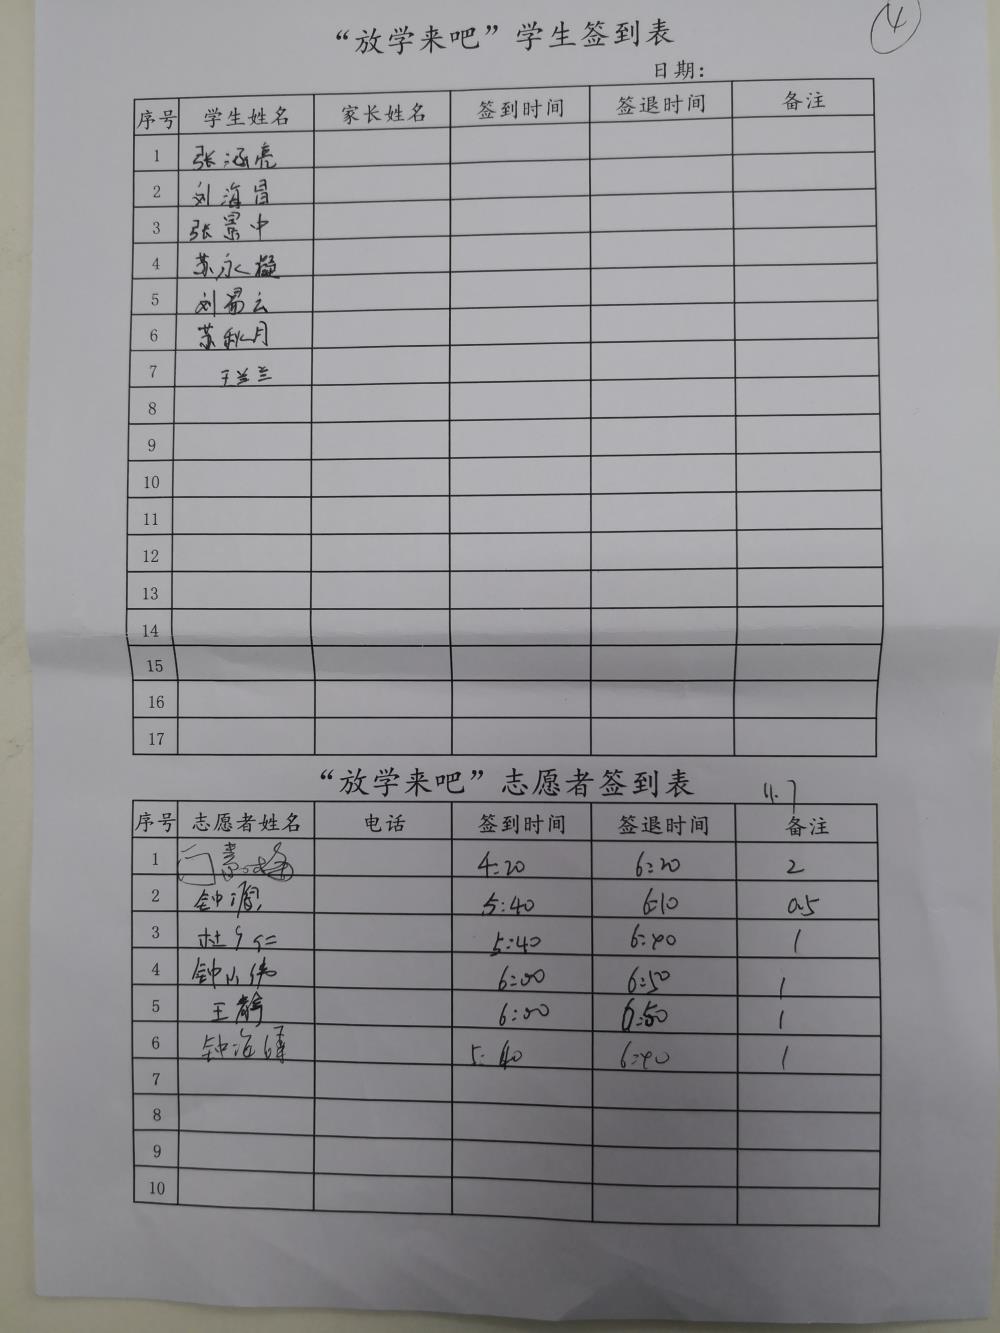 4
“放学来吧”学生签到表
日期：
序号 学生姓名 家长姓名 签到时间 签退时间 备注
1 张涵亮
2 刘海昌
3 张景中
4 苏永凝
5 刘易云
6 苏秋月
7 王兰兰
8
9
10
11
12
13
14
15
16
17
“放学来吧”志愿者签到表
11.7
序号 志愿者姓名 电话 签到时间 签退时间 备注
1 4:20 6:20 2
2 钟 5:40 6:10 0.5
3 杜 5:40 6:40 1
4 钟 伟 6:00 6:50 1
5 王静 6:00 6:50 1
6 钟海 5:40 6:40 1
7
8
9
10